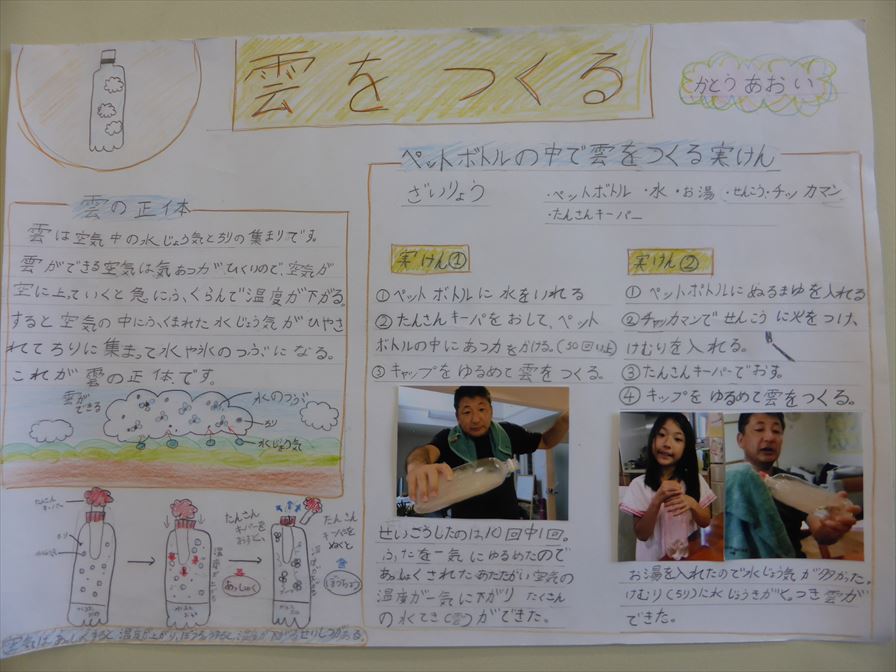 雲をつくる
かとうあおい
雲の正体
雲は空気中の水じょう気とちりの集まりです。
雲ができる空気は気あつがひくいので、空気が
空に上っていくと急にふくらんで温度が下がる。
すると空気の中にふくまれた水じょう気がひやさ
れてちりに集まって水や氷のつぶになる。
これが雲の正体です。
雲が
できる
水のつぶ
ちり
水じょう気
たんさん
キーパー
たんさん
キーパーを
おすと、
あっしゅく
たんさん
キーパーを
ぬくと
ぼうちょう
ペットボトルの中で雲をつくる実けん
ざいりょう
・ペットボトル・水・お湯・せんこう・チッカマン
・たんさんキーパー
実けん①
①ペットボトルに水をいれる
②たんさんキーパをおして、ペット
ボトルの中にあつ力をかける。(50回以上)
③キャップをゆるめて雲をつくる。
せいこうしたのは10回中1回。
ふたを一気にゆるめたので
あっしゅくされたあたたかい空気の
温度が一気に下がり たくさん
の水てき(雲)ができた。
実けん②
①ペットボトルにぬるまゆを入れる
②チャッカマンでせんこうに火をつけ、
けむりを入れる。
③たんさんキーパーでおす。
④キップをゆるめて雲をつくる。
お湯を入れたので水じょう気が多かった。
けむり(ちり)に水じょうきがくっつき雲が
できた。